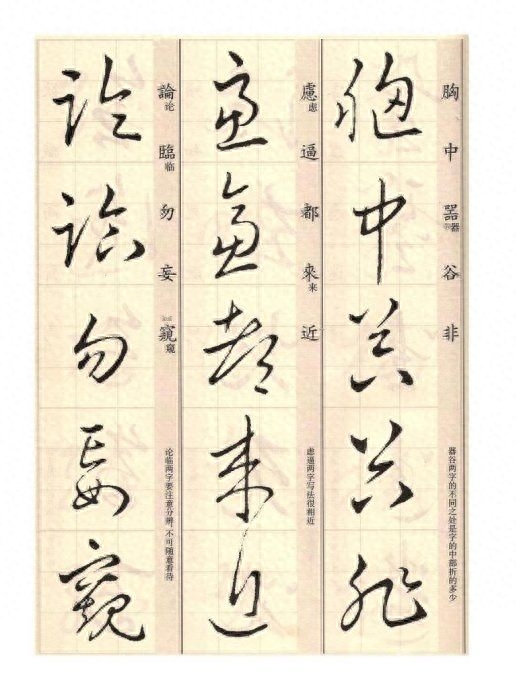 胸中噐器谷非
器谷两字的不同之处是字的中部折的多少
胸中器谷非
慮虑逼都來来近
虑逼两字写法很相近
慮逼都来近
論论臨临勿妄窺窥
论临两字要注意分辨，不可随意看待
論臨勿妄窺